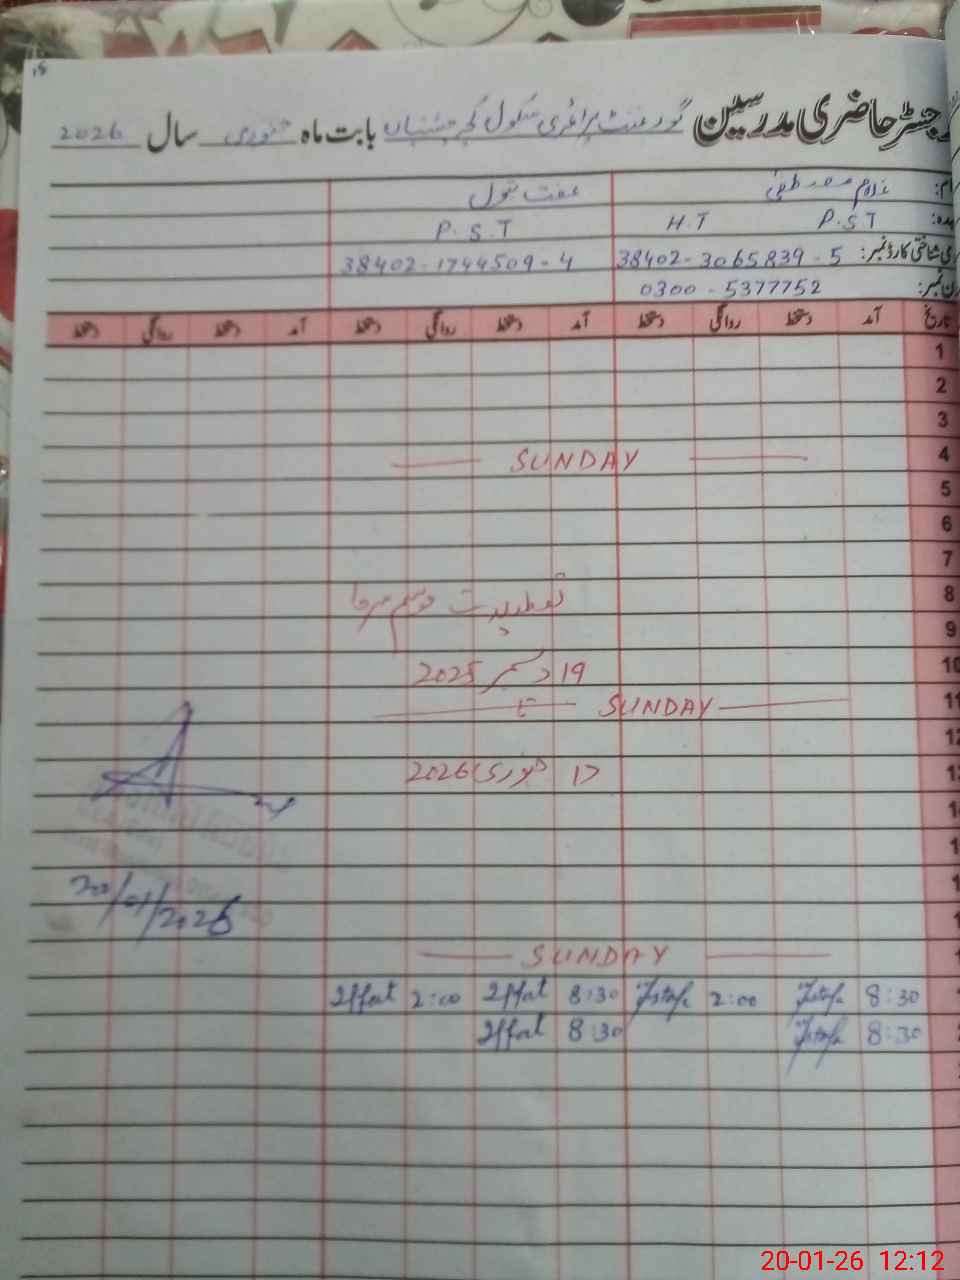 15
رجسٹر حاضری مدرسین گورنمنٹ پرائمری سکول بابت ماہ جنوری سال 2026
نام: غلام مصطفیٰ عفت بتول
عہدہ: P.S.T H.T P.S.T
شناختی کارڈ نمبر: 38402-3065839-5 38402-1744509-4
فون نمبر: 0300-5377752
تاریخ آمد دستخط روانگی دستخط آمد دستخط روانگی دستخط آمد دستخط روانگی دستخط
1
2
3
4 SUNDAY
5
6
7
8 تعطیلات موسم سرما
9
10 19 دسمبر 2025
11 SUNDAY تا
12
13 جنوری 2026
20/01/2026
SUNDAY
8:30 2:00 8:30 Iffat 2:00 Iffat
8:30 8:30 Iffat
20-01-26 12:12